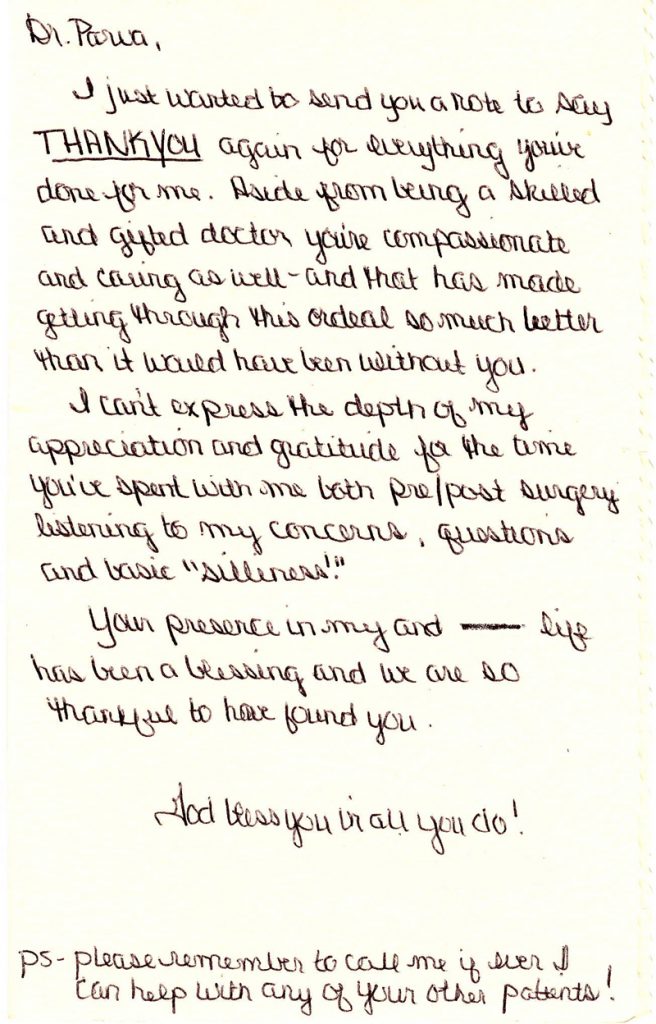 Dr. Parva,
I just wanted to send you a note to say
THANK YOU again for everything you've
done for me. Aside from being a skilled
and gifted doctor, you're compassionate
and caring as well - and that has made
getting through this ordeal so much better
than it would have been without you.
I can't express the depth of my
appreciation and gratitude for the time
you've spent with me both pre/post surgery
listening to my concerns, questions
and basic "silliness!"
Your presence in my and life
has been a blessing and we are so
thankful to have found you.
God bless you in all you do!
ps - please remember to call me if ever I
can help with any of your other patients!